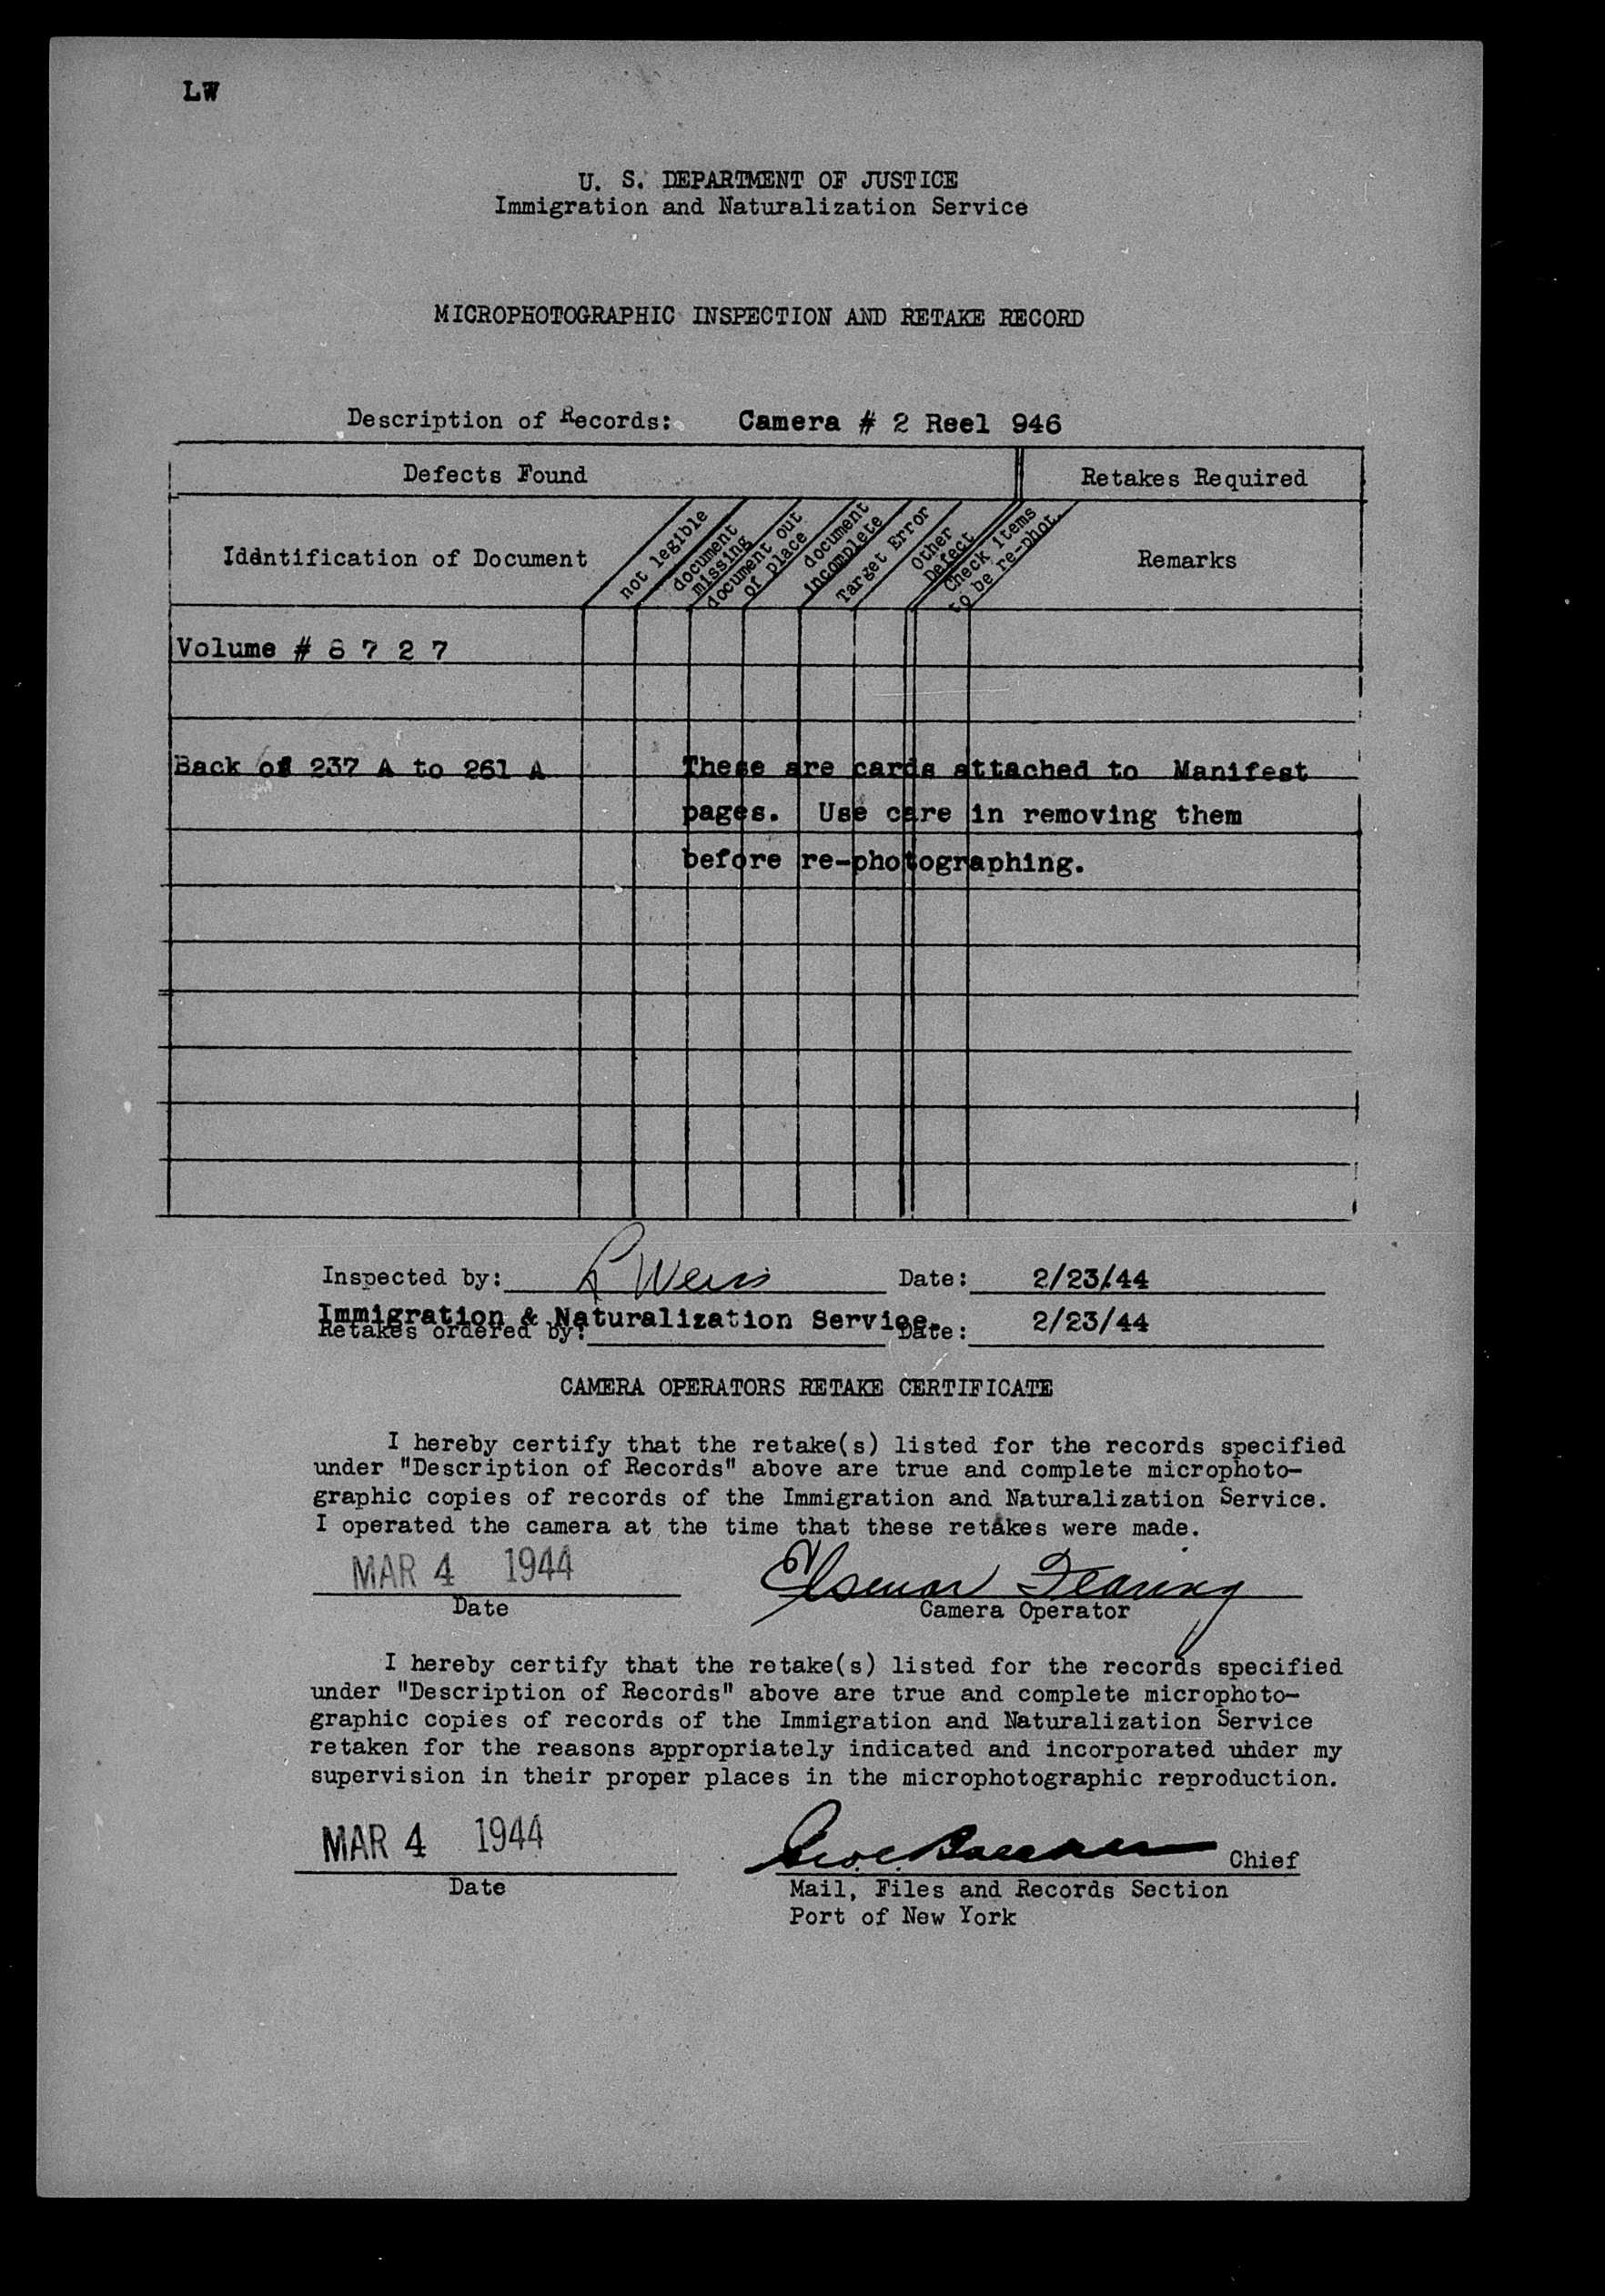 LW
U. S. DEPARTMENT OF JUSTICE
Immigration and Naturalization Service
MICROPHOTOGRAPHIC INSPECTION AND RETAKE RECORD
Description of Records: Camera # 2 Reel 946
Defects Found
Retakes Required
Identification of Document
not legible
document missing
document out of place
document incomplete
Target Error
Other Defect
Check items to be re-phot.
Remarks
Volume # 8 7 2 7
Back of 237 A to 261 A These are cards attached to Manifest
pages. Use care in removing them
before re-photographing.
Inspected by: L Weiss Date: 2/23/44
Immigration & Naturalization Service.
Retakes ordered by: Date: 2/23/44
CAMERA OPERATORS RETAKE CERTIFICATE
I hereby certify that the retake(s) listed for the records specified
under "Description of Records" above are true and complete microphoto-
graphic copies of records of the Immigration and Naturalization Service.
I operated the camera at the time that these retakes were made.
MAR 4 1944
Date
Camera Operator
I hereby certify that the retake(s) listed for the records specified
under "Description of Records" above are true and complete microphoto-
graphic copies of records of the Immigration and Naturalization Service
retaken for the reasons appropriately indicated and incorporated under my
supervision in their proper places in the microphotographic reproduction.
MAR 4 1944
Chief
Date
Mail, Files and Records Section
Port of New York